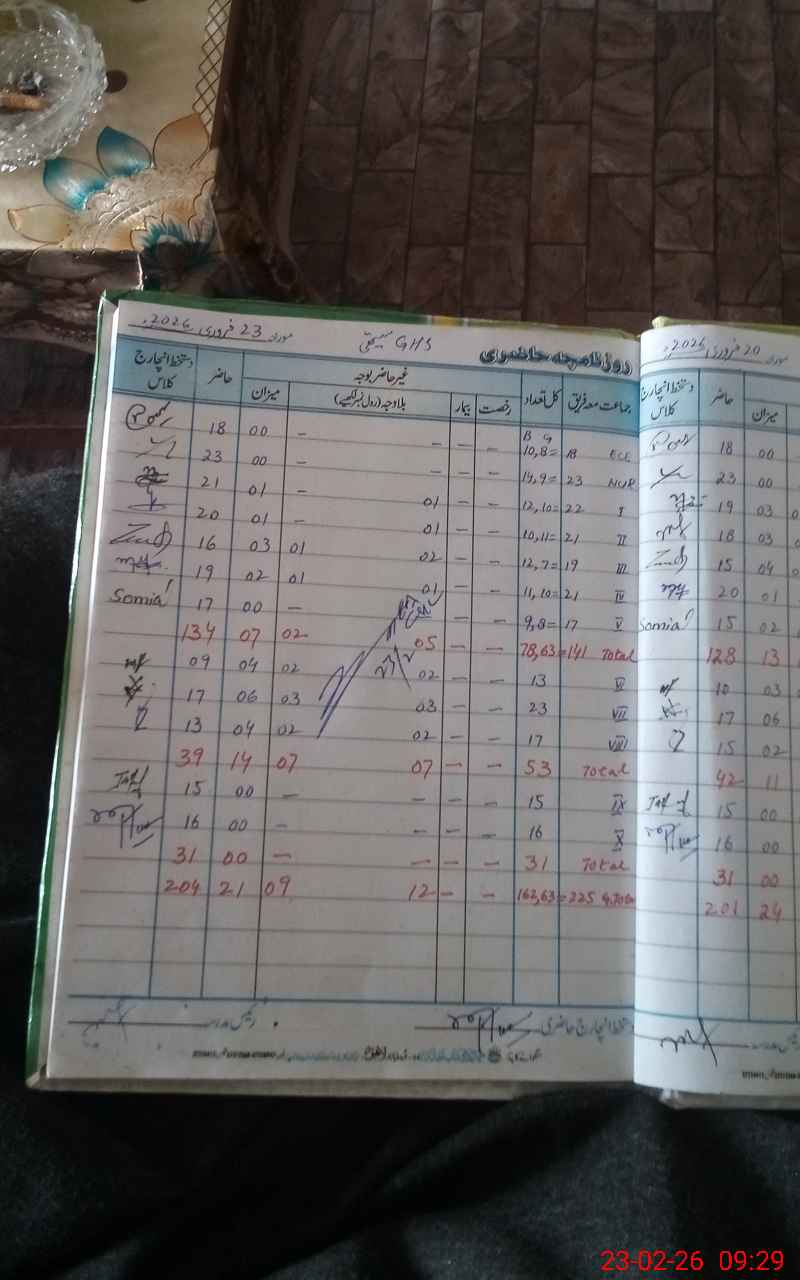 مورخہ 23 فروری 2026ء GHS
روزنامچہ حاضری
جماعت معہ فریق کل تعداد غیر حاضر بوجہ حاضر دستخط انچارج کلاس
رخصت بیمار بلاوجہ (رول نمبر لکھیے) میزان
B G
ECE 10,8= 18 - - - - 00 18
NUR 14,9= 23 - - - - 00 23
I 12,10= 22 - - 01 01 21
II 10,11= 21 - - 01 01 20
III 12,7= 19 - - 02 01 03 16
IV 11,10= 21 - - 01 01 02 19
V 9,8= 17 - - - 00 17 Somia
Total 78,63=141 - - 05 02 07 134
VI 13 - - 02 02 04 09
VII 23 - - 03 03 06 17
VIII 17 - - 02 02 04 13
Total 53 - - 07 07 14 39
IX 15 - - - - 00 15
X 16 - - - - 00 16
Total 31 - - - - 00 31
G.Total 162,63=225 - - 12 09 21 204
دستخط انچارج حاضری رئیس مدرسہ
مورخہ 20 فروری 2026ء
میزان حاضر دستخط انچارج کلاس
00 18
00 23
03 19
03 18
04 15
01 20
02 15 Somia
13 128
03 10
06 17
02 15
11 42
00 15
00 16
00 31
24 201
23-02-26 09:29